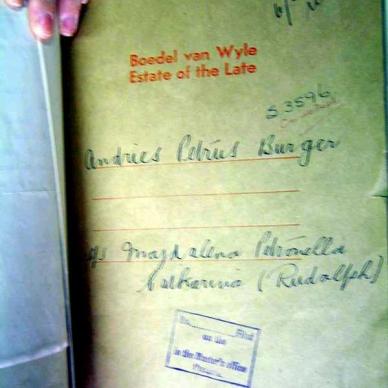 Boedel van Wyle
Estate of the Late
53596
Andries Petrus Burger
gs Magdalena Petronella
Catharina (Rudolph)
filed
on the
in the Master's office